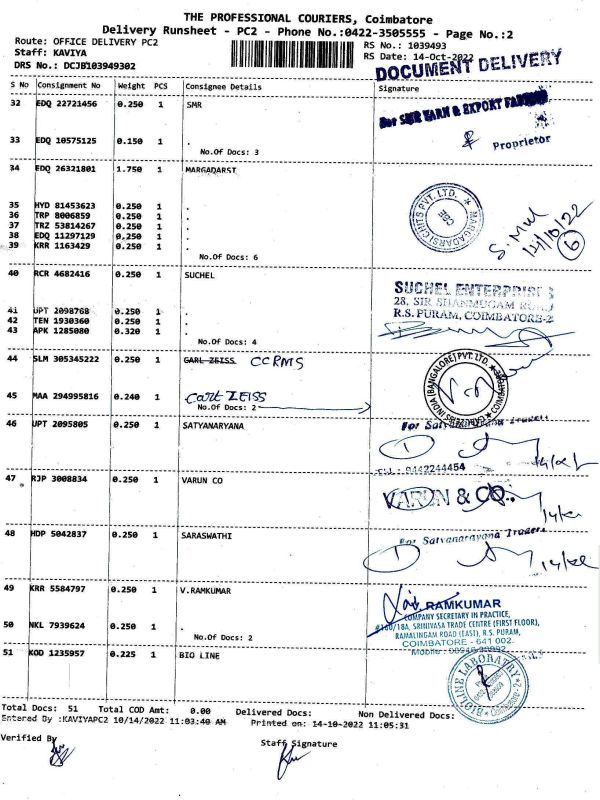 THE PROFESSIONAL COURIERS, Coimbatore
Delivery Runsheet - PC2 - Phone No.:0422-3505555 - Page No.:2
Route: OFFICE DELIVERY PC2
RS No.: 1039493
Staff: KAVIYA
RS Date: 14-Oct-2022
DRS No.: DCJB103949302
DOCUMENT DELIVERY
S No Consignment No Weight PCS Consignee Details Signature
32 EDQ 22721456 0.250 1 SMR
For SMR YARN & EXPORT
Proprietor
33 EDQ 10575125 0.150 1 .
No.Of Docs: 3
34 EDQ 26321801 1.750 1 MARGADARST
MARGADARSI CHITS PVT. LTD.
CBE
35 HYD 81453623 0.250 1 .
36 TRP 8006859 0.250 1 .
37 TRZ 53814267 0.250 1 .
38 EDQ 11297129 0.250 1 .
39 KRR 1163429 0.250 1 .
No.Of Docs: 6
14/10/22
6
40 RCR 4682416 0.250 1 SUCHEL
SUCHEL ENTERPRISES
28, SIR SHANMUGAM ROAD
R.S. PURAM, COIMBATORE-2
41 UPT 2098768 0.250 1 .
42 TEN 1930360 0.250 1 .
43 APK 1285080 0.320 1 .
No.Of Docs: 4
44 SLM 305345222 0.250 1 CARL ZEISS CCRMS
INDIA (BANGALORE) PVT. LTD.
45 MAA 294995816 0.240 1 Carl ZEISS
No.Of Docs: 2
46 UPT 2095805 0.250 1 SATYANARYANA
For Satyanarayana Traders
0442244454
47 RJP 3008834 0.250 1 VARUN CO
VARUN & CO.
48 HDP 5042837 0.250 1 SARASWATHI
For Satyanarayana Traders
49 KRR 5584797 0.250 1 V.RAMKUMAR
RAMKUMAR
COMPANY SECRETARY IN PRACTICE,
#160/18A, SRINIVASA TRADE CENTRE (FIRST FLOOR),
RAMALINGAM ROAD (EAST), R.S. PURAM,
COIMBATORE - 641 002.
50 NKL 7939624 0.250 1 .
No.Of Docs: 2
51 KOD 1235957 0.225 1 BIO LINE
BIO LINE LABORATORY
Total Docs: 51 Total COD Amt: 0.00 Delivered Docs: Non Delivered Docs:
Entered By :KAVIYAPC2 10/14/2022 11:03:40 AM Printed on: 14-10-2022 11:05:31
Verified By
Staff Signature